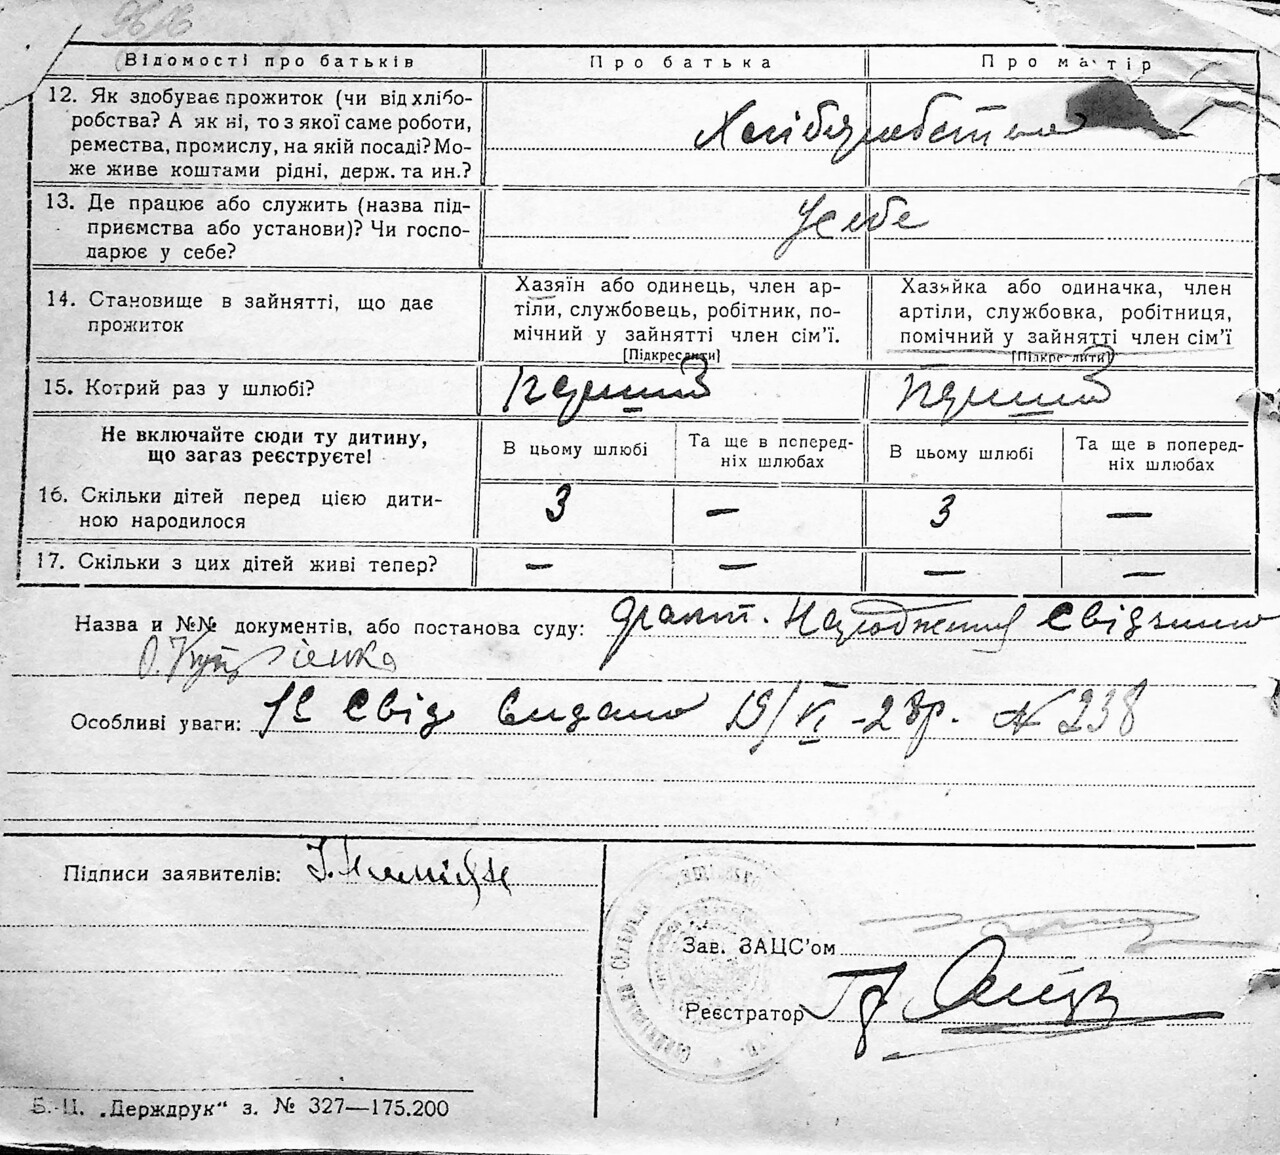 96/6
Відомості про батьків
Про батька
Про матір
12. Як здобуває прожиток (чи від хлібо-
робства? А як ні, то з якої саме роботи,
ремества, промислу, на якій посаді? Мо-
же живе коштами рідні, держ. та ин.?
Хліборобством
13. Де працює або служить (назва під-
приємства або установи)? Чи госпо-
дарює у себе?
У себе
14. Становище в зайнятті, що дає
прожиток
Хазяїн або одинець, член ар-
тіли, службовець, робітник, по-
мічний у зайнятті член сім'ї.
[Підкреслити]
Хазяйка або одиначка, член
артіли, службовка, робітниця,
помічний у зайнятті член сім'ї
[Підкреслити]
15. Котрий раз у шлюбі?
Перший
Перший
Не включайте сюди ту дитину,
що загаз реєструєте!
В цьому шлюбі
Та ще в поперед-
ніх шлюбах
В цьому шлюбі
Та ще в поперед-
ніх шлюбах
16. Скільки дітей перед цією дити-
ною народилося
3 — 3 —
17. Скільки з цих дітей живі тепер?
— — — —
Назва и №№ документів, або постанова суду:
Народження Свідчимо
Особливі уваги: Свід видано 19/VI-28р. № 238
Підписи заявителів:
Зав. ЗАЦС'ом
Реєстратор
Б.-Ц. „Держдрук" з. № 327—175.200